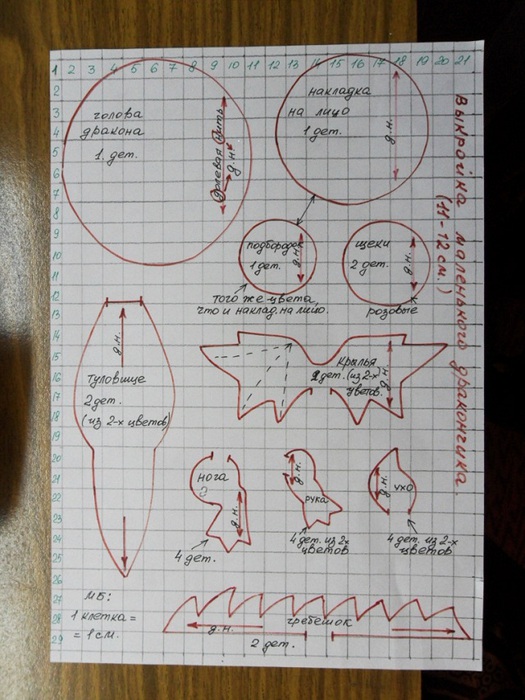 1 2 3 4 5 6 7 8 9 10 11 12 13 14 15 16 17 18 19 20 21
2
3
4
5
6
7
8
9
10
11
12
13
14
15
16
17
18
19
20
21
22
23
24
25
26
27
28
29
Выкройка маленького дракончика.
(11-12 см.)
голова
дракона
1. дет.
долевая нить
д.н.
накладка
на лицо
1 дет.
д.н.
подбородок
1 дет.
д.н.
того же цвета,
что и наклад. на лицо.
щеки
2 дет.
д.н.
розовые
д.н.
туловище
2 дет.
(из 2-х цветов)
крылья
2 дет. (из 2-х)
цветов.
д.н.
нога
д.н.
4 дет.
д.н.
рука
4 дет. из 2х
цветов
д.н.
ухо
4 дет. из 2-х
цветов
МБ:
1 клетка =
= 1 см.
гребешок
д.н.
2 дет.